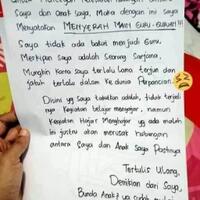 Saya dan anak Saya, Maka dengan ini Saya
Menyatakan MENYERAH MAIN GURU-GURUAN!!!
Saya tidak ada bakat menjadi Guru
Meskipun saya adalah Seorang Sarjana,
Mungkin karna saya terlalu lama terjun dan
jatuh terlalu dalam ke dunia Perpancian.
Disini yg Saya takutkan adalah, bukan terjadi
nya kegiatan belajar mengajar, namun
kegiatan Hajar Menghajar yg ada malah
ini justru akan merusak hubungan
antara Saya dan Anak Saya Pastinya
Tertulis Ulang,
Demikian dari Saya,
Bunda Anak2 yg sudah